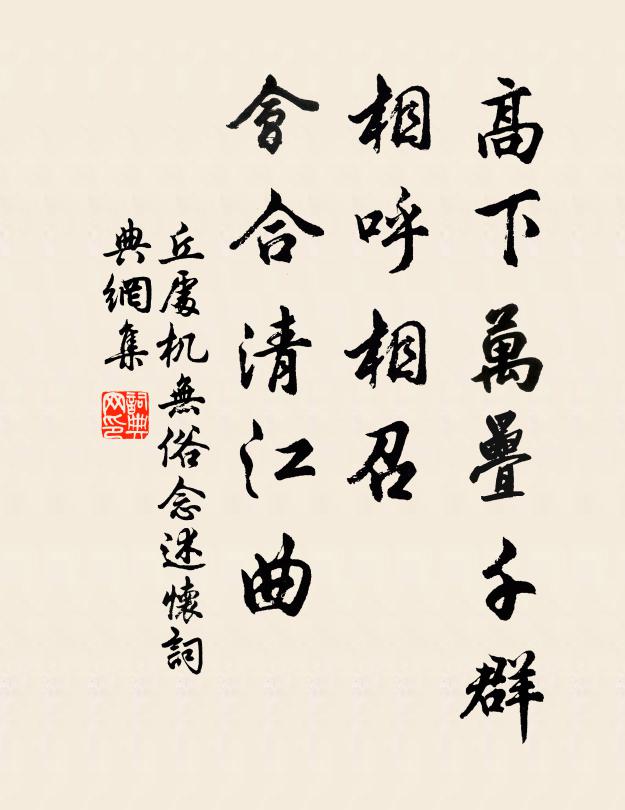 高下萬疊千群
相呼相召
會合清江曲
丘處机無俗念述懷詞
典網集
詞典
网印